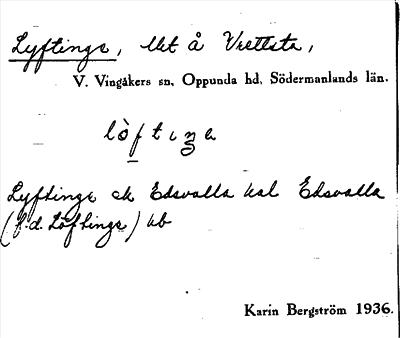 Lyftinge, lht å Vrettsta,
V. Vingåkers sn, Oppunda hd, Södermanlands län.
Lyftinge ek Edsvalla hal Edsvalla
(f.d. Löftinge) hb
Karin Bergström 1936.